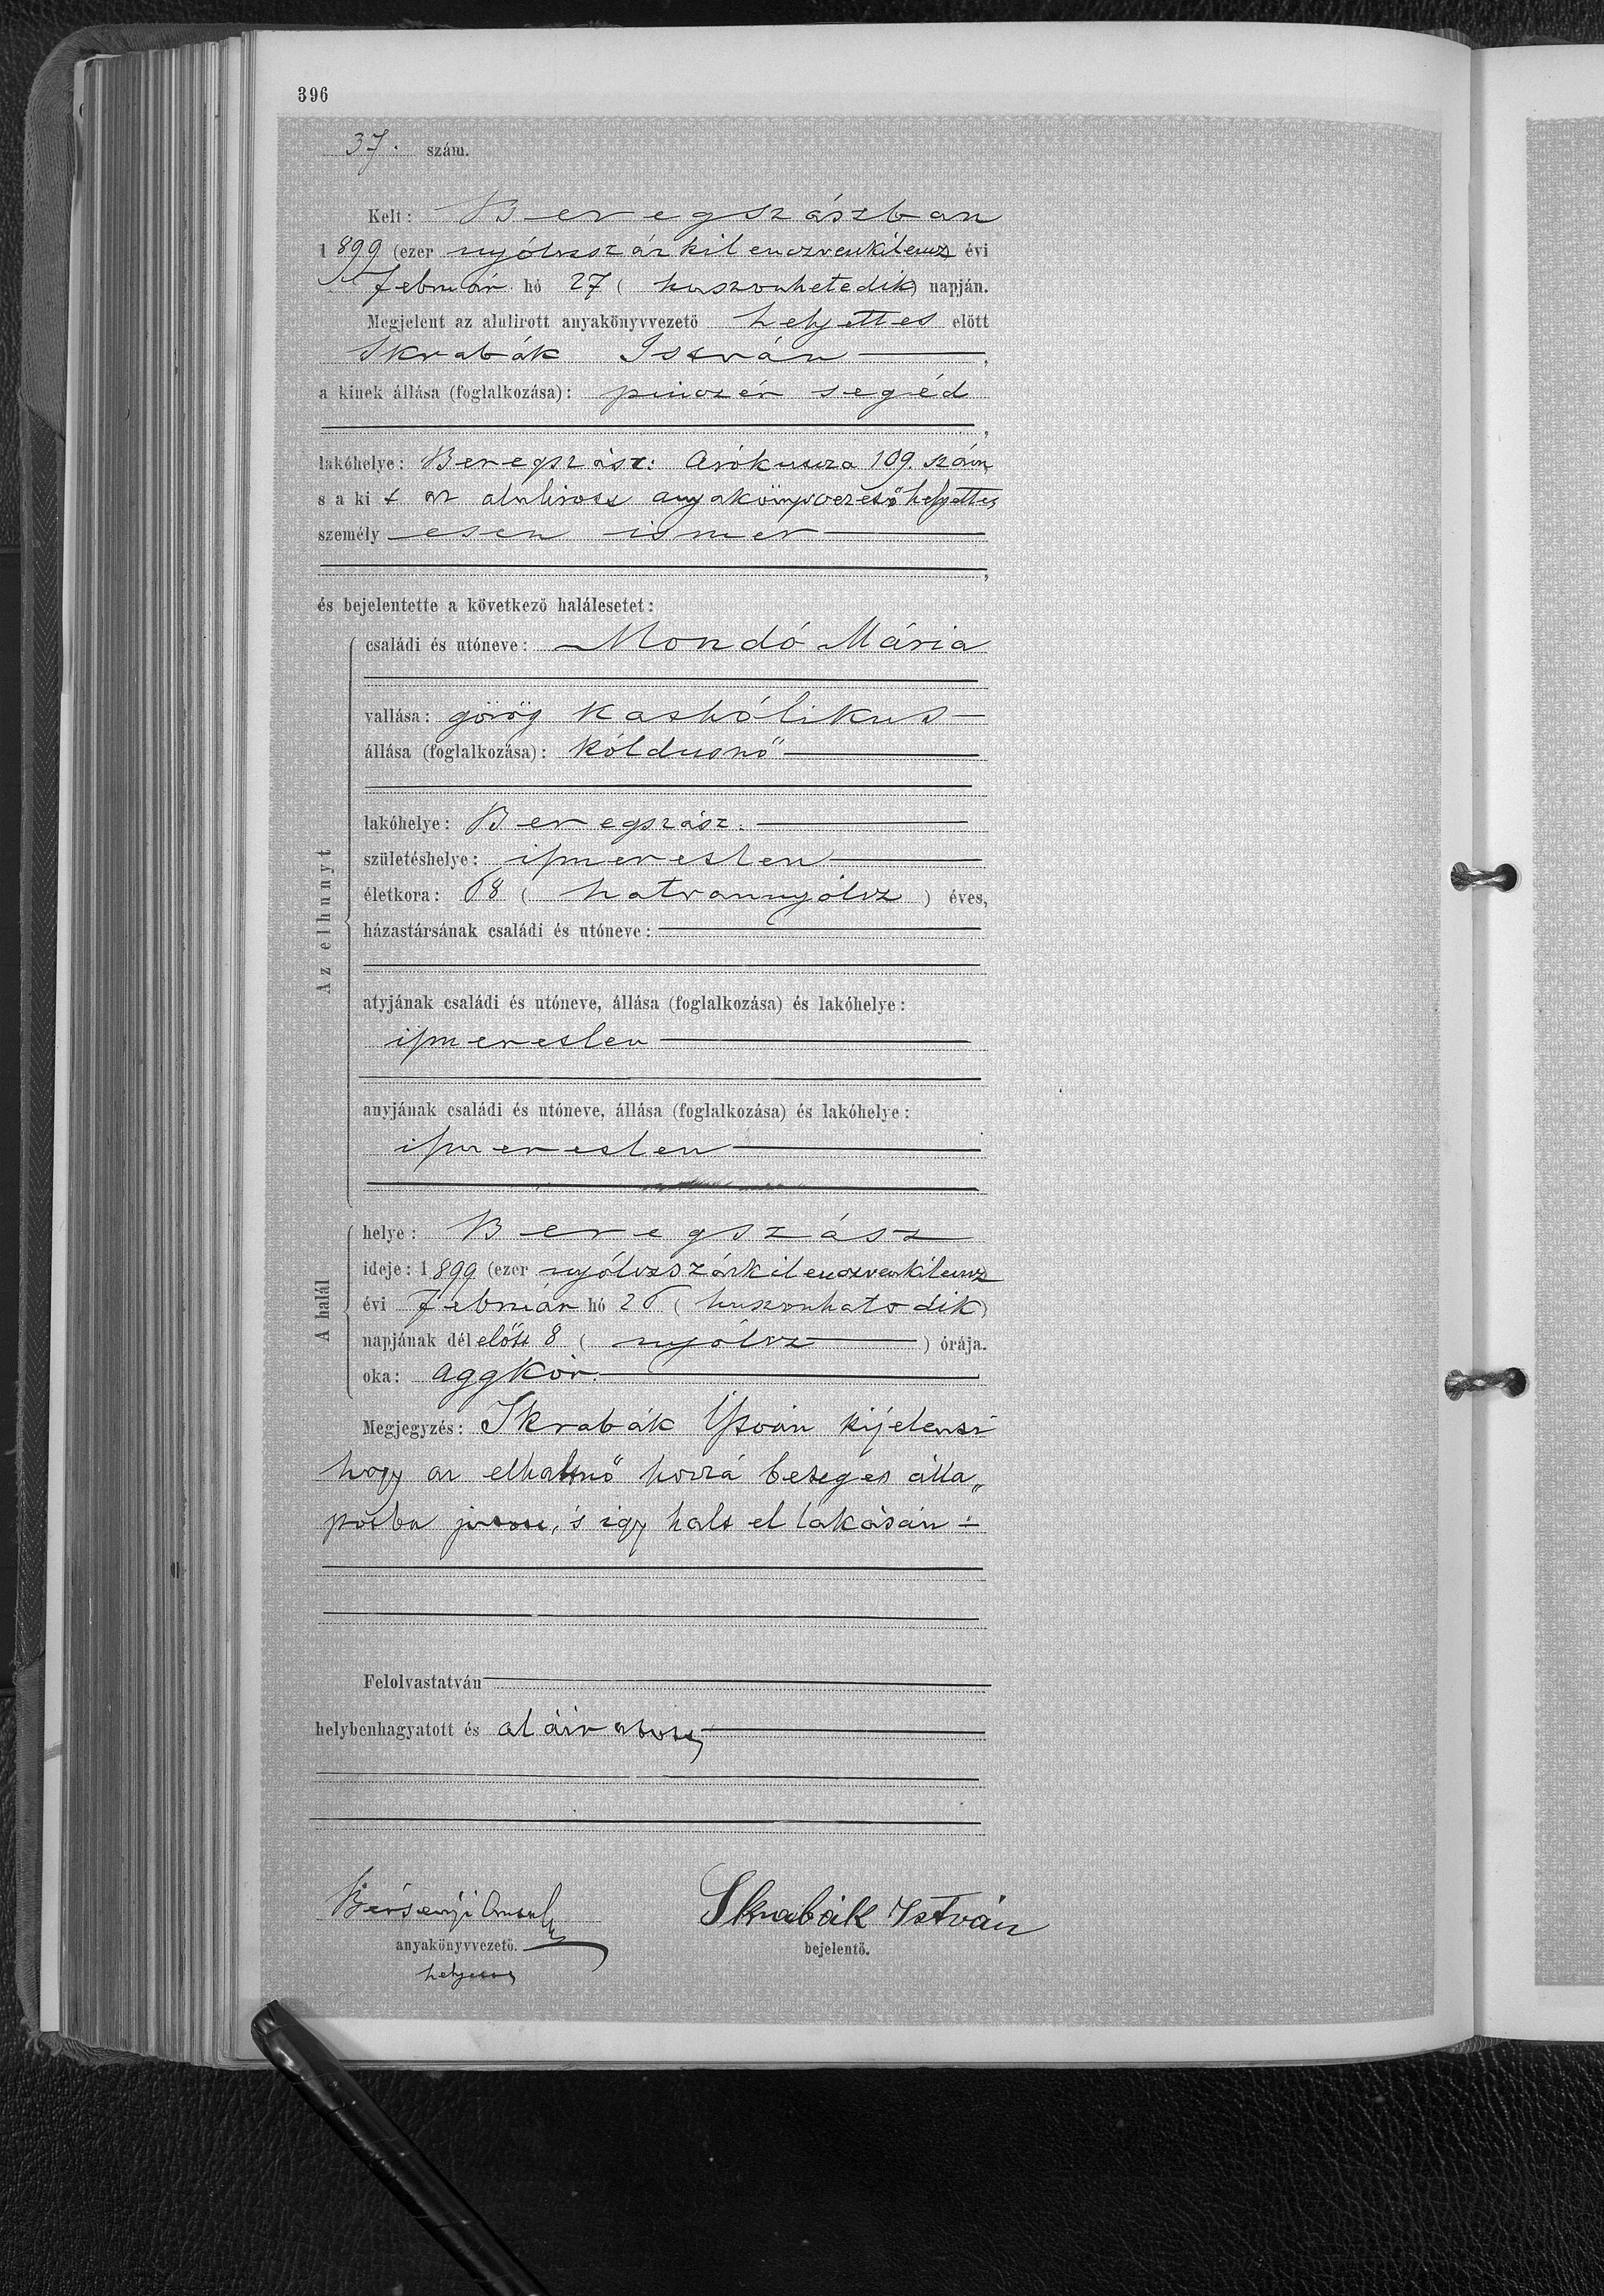 396
37. szám.
Kelt: Beregszászban
1899 (ezer nyólczszázkilenczvenkilencz) évi
február hó 27 (huszonhetedik) napján.
Megjelent az alulirott anyakönyvvezető helyettes előtt
Skrabák István,
a kinek állása (foglalkozása): pinczér segéd
lakóhelye: Beregszász: 109. szám,
s a kit az alulirott anyakönyvvezető helyettes
személyesen ismer,
és bejelentette a következő halálesetet:
Az elhunyt
családi és utóneve: Mondó Mária
vallása: görög kathólikus
állása (foglalkozása): kóldusnő
lakóhelye: Beregszász.
születéshelye: ismeretlen
életkora: 68 (hatvannyólcz) éves,
házastársának családi és utóneve:
atyjának családi és utóneve, állása (foglalkozása) és lakóhelye:
ismeretlen
anyjának családi és utóneve, állása (foglalkozása) és lakóhelye:
ismeretlen
A halál
helye: Beregszász
ideje: 1899 (ezer nyólczszázkilenczvenkilencz)
évi február hó 26 (huszonhatodik)
napjának délelőtt 8 (nyólcz) órája.
oka: aggkór.
Megjegyzés: Skrabák István kijelenti
hogy az elhaltnő hozzá beteges álla„
potba jutott, s igy halt el lakásán
Felolvastatván
helybenhagyatott és aláiratott,
anyakönyvvezető.
helyettes
Skrabák István
bejelentő.